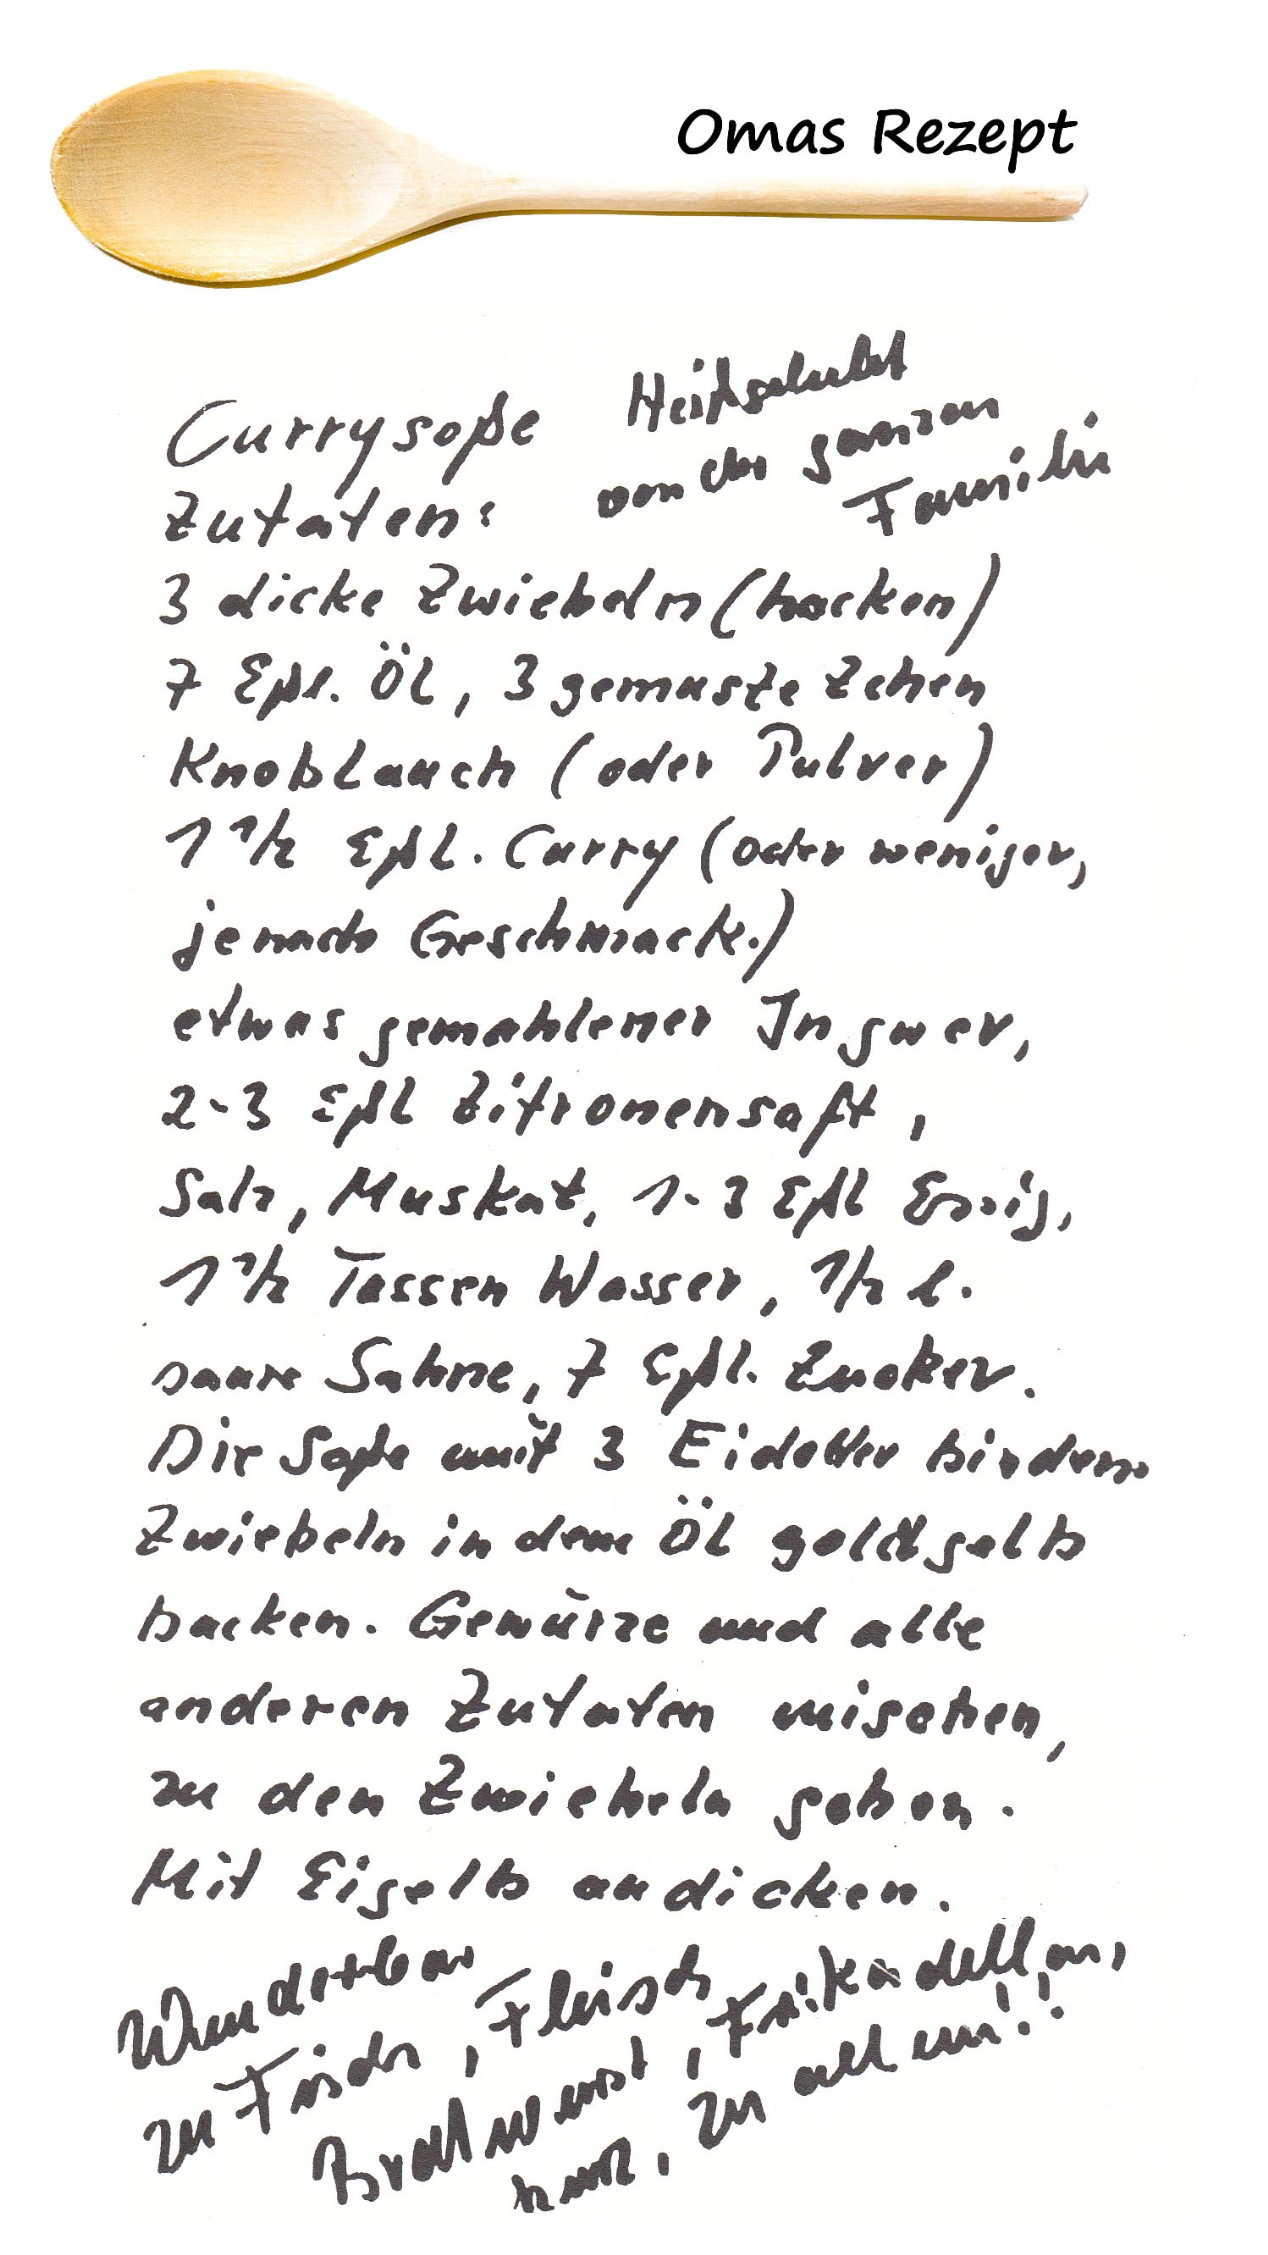 Omas Rezept
Currysoße
Heißgeliebt
von der ganzen
Familie
Zutaten:
3 dicke Zwiebeln (hacken)
7 Eßl. Öl, 3 gemuste Zehen
Knoblauch (oder Pulver)
1 1/2 Eßl. Curry (oder weniger,
je nach Geschmack.)
etwas gemahlener Ingwer,
2-3 Eßl Zitronensaft,
Salz, Muskat, 1-3 Eßl Essig,
1 1/2 Tassen Wasser, 1/2 l.
saure Sahne, 7 Eßl. Zucker.
Die Soße mit 3 Eidotter binden
Zwiebeln in dem Öl goldgelb
backen. Gewürze und alle
anderen Zutaten mischen,
zu den Zwiebeln geben.
Mit Eigelb andicken.
Wunderbar
zu Fisch, Fleisch
Bratwurst, Frikadellen,
kurz, zu allem!!